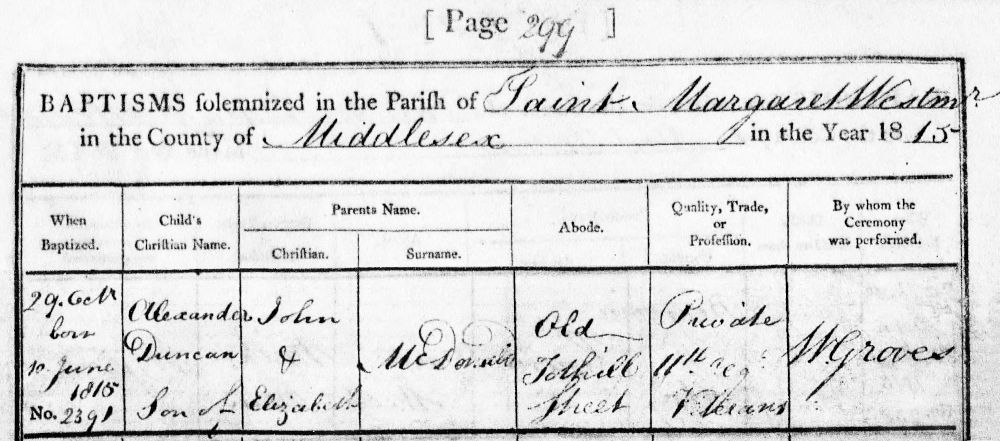 [ Page 299 ]
BAPTISMS solemnized in the Parish of Saint Margaret Westmr
in the County of Middlesex in the Year 18 15
When Baptized.
Child's Christian Name.
Parents Name.
Christian.
Surname.
Abode.
Quality, Trade, or Profession.
By whom the Ceremony was performed.
29. Octr
born
10 June
1815
No. 2391
Alexander
Duncan
Son of
John
&
Elizabeth
McDonald
Old
Tothill
Street
Private
11th
Veterans
W Groves